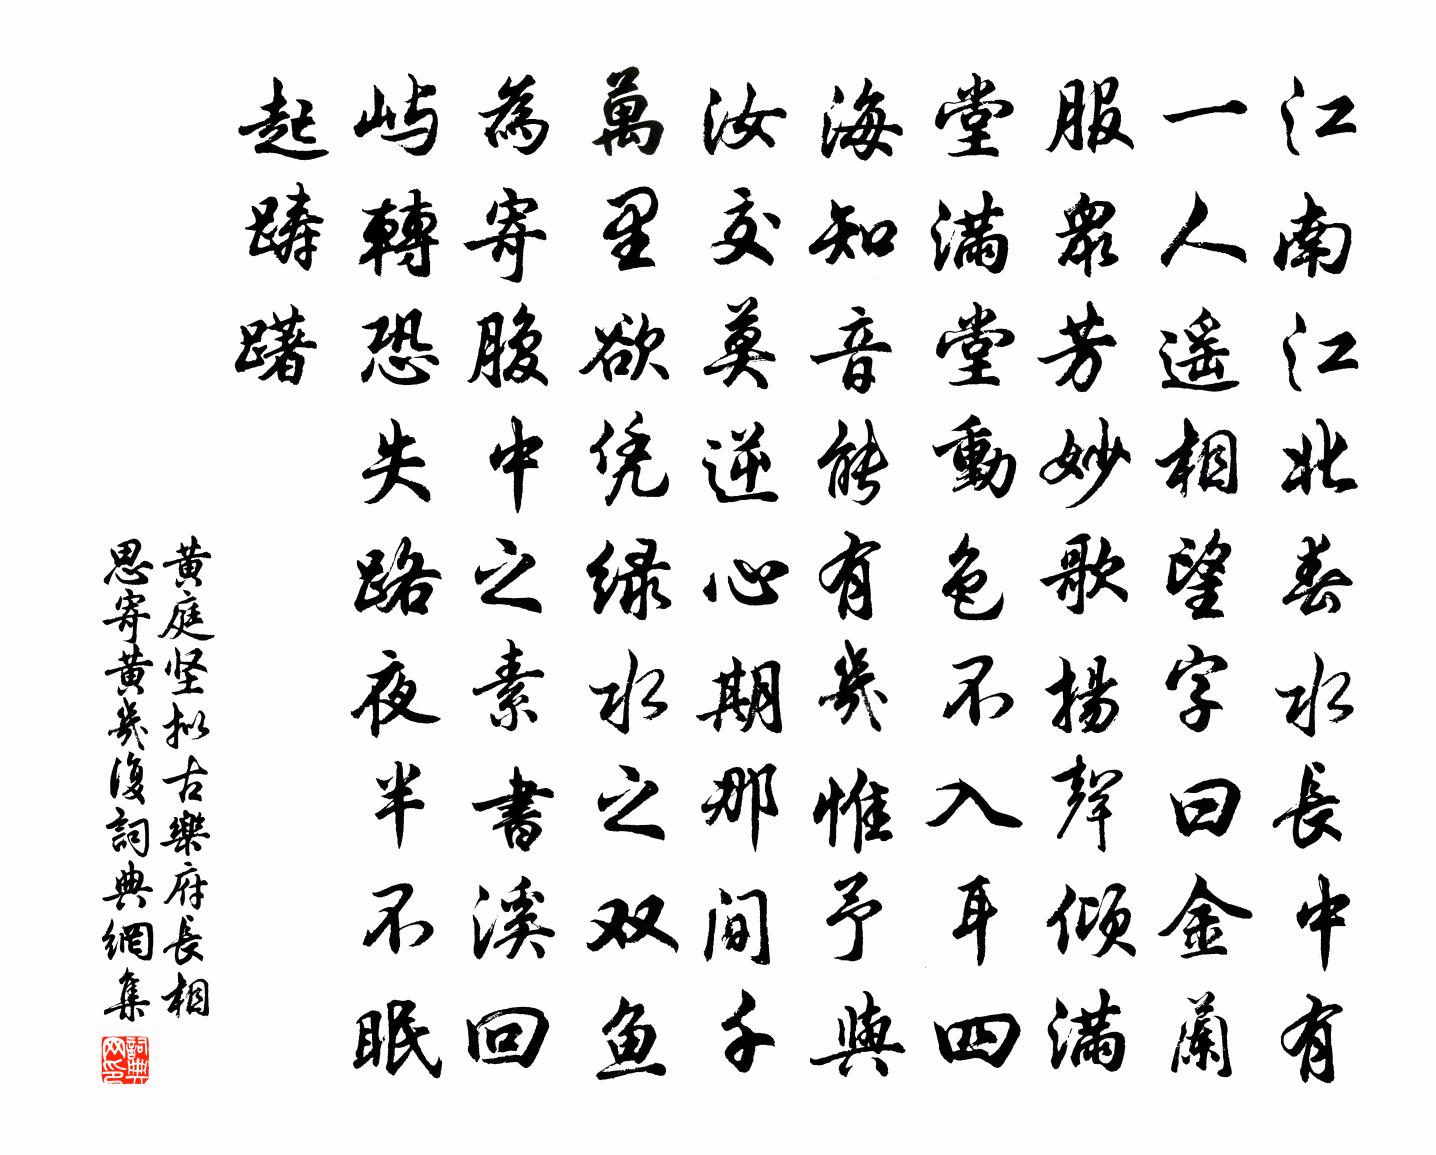 江南江北春水長中有
一人遥相望字曰金蘭
服衆芳妙歌揚聲傾滿
堂滿堂動色不入耳四
海知音能有幾惟予與
汝交莫逆心期那間千
萬里欲凭緑水之双鱼
為寄腹中之素書溪回
屿轉恐失路夜半不眠
起踌躇
黄庭坚拟古樂府長相
思寄黄幾復詞典網集
詞典
网印